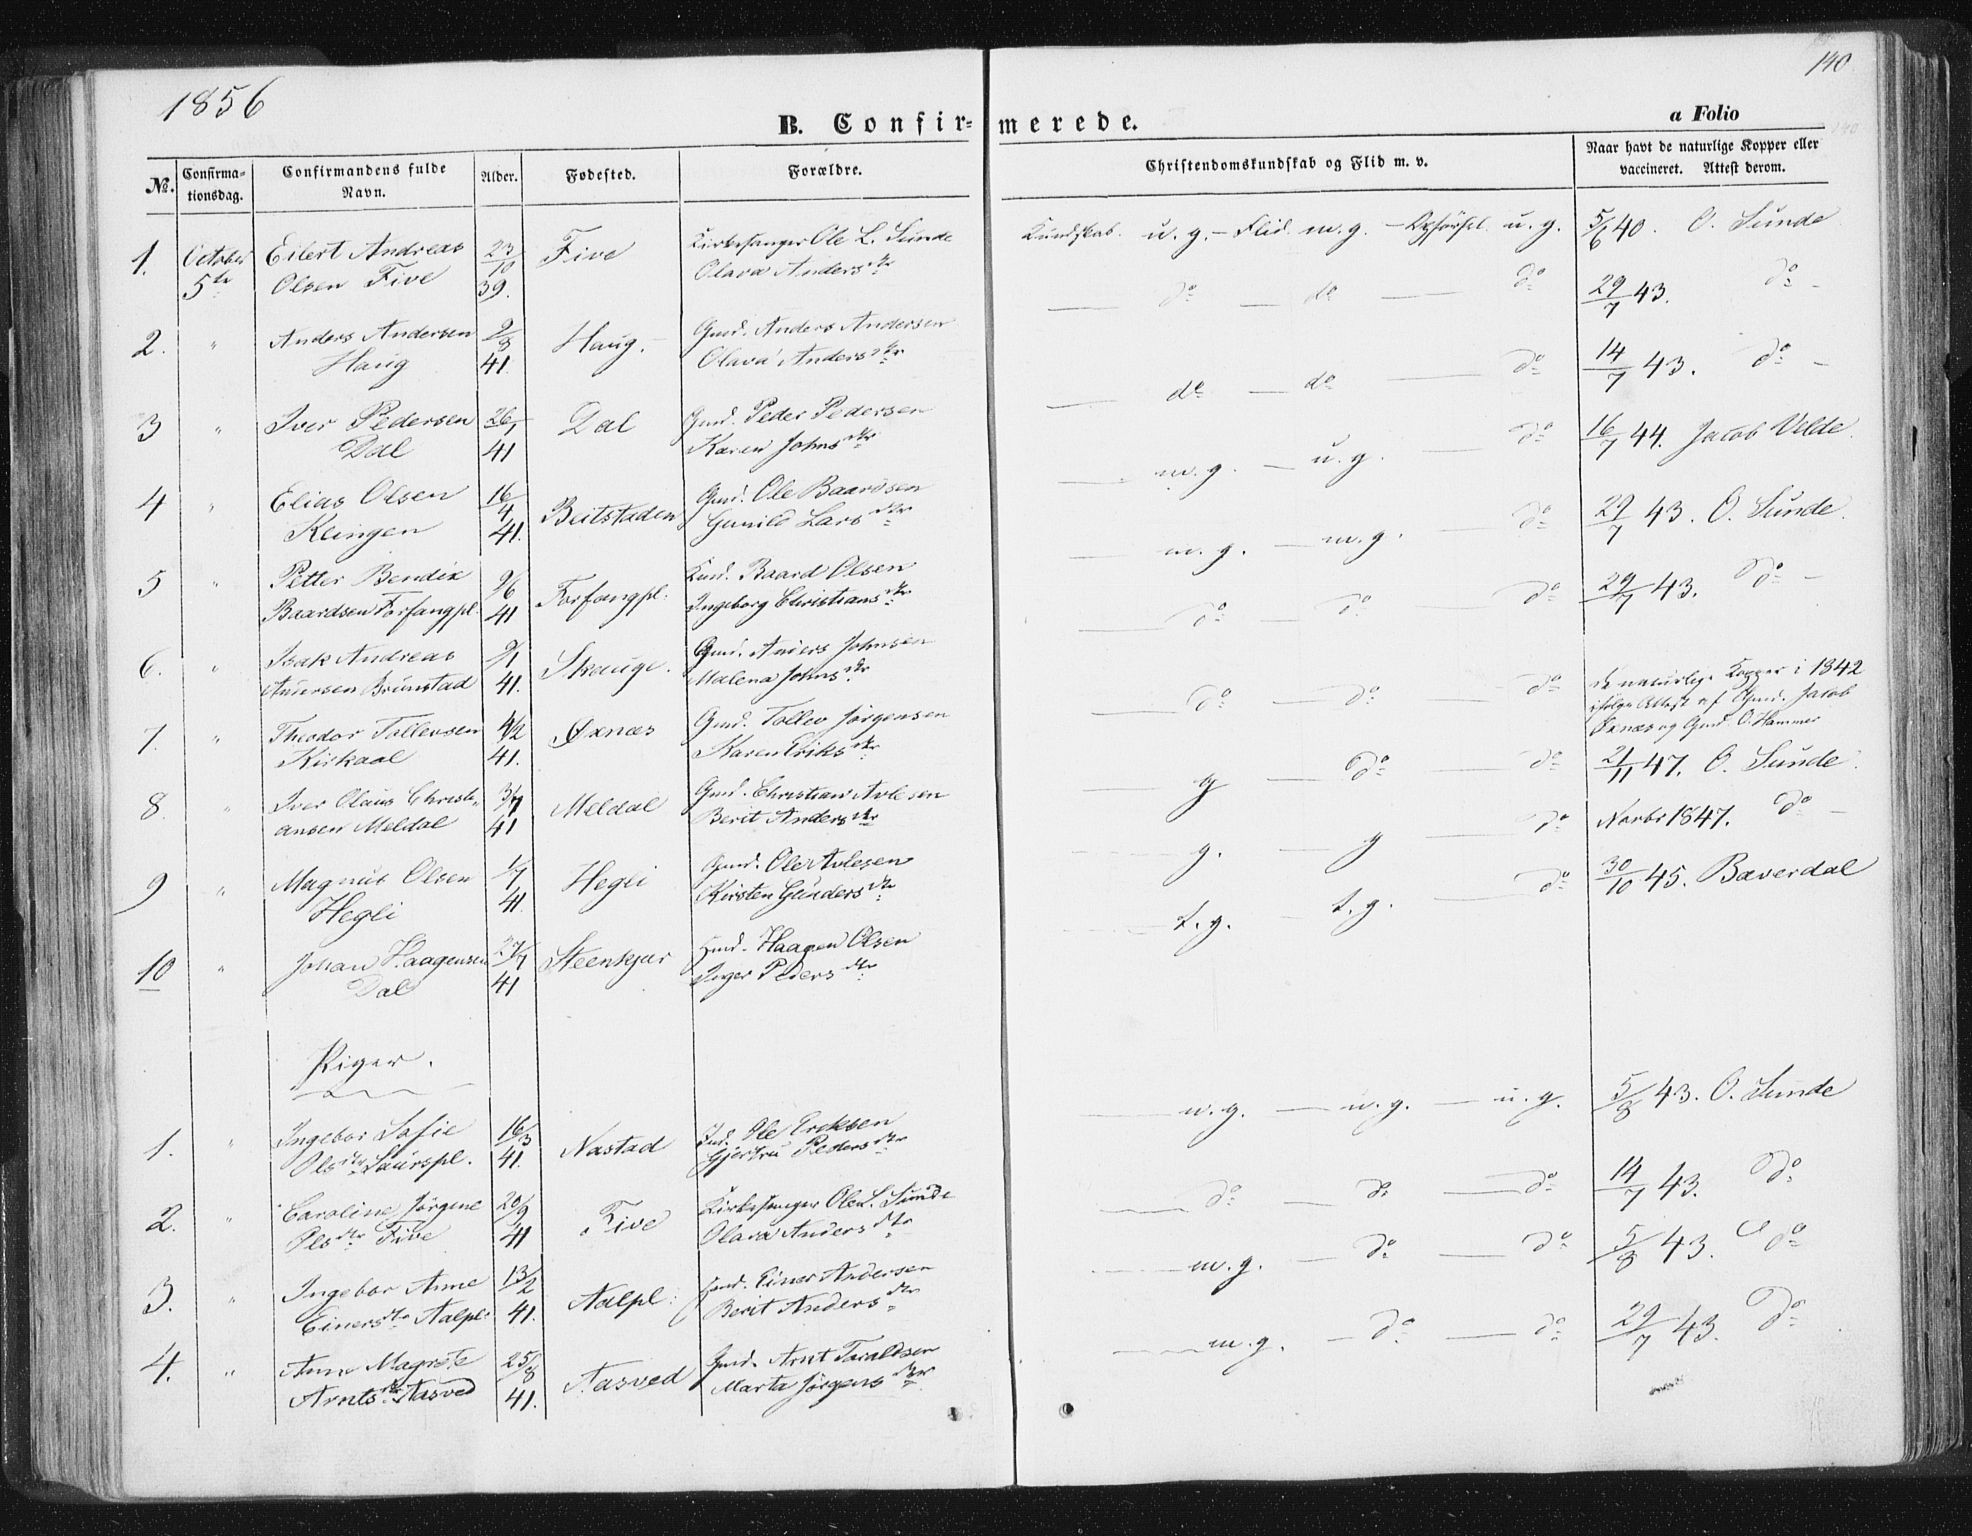 1856
140
B. Confir-merede.
a Folio
No. Confirma-tionsdag. Confirmandens fulde Navn. Alder. Fødested. Forældre. Christendomskundskab og Flid m. v. Naar havt de naturlige Kopper eller vaccineret. Attest derom.
1. October Eilert Andreas 23/10 Five Kirkesanger Ole L. Sunde Kundskab u. g. – Flid m. g. – Opførsel u. g. 5/6 40. O. Sunde
5te Olsen Five 39. Olava Andersdtr
2. " Anders Andersen 9/8 Haug. Gmd. Anders Andersen — do — do — do 29/7 43. do –
Haug 41. Olava Andersdtr
3 " Iver Pedersen 26/1 Dal Gmd. Peder Pedersen — do — do — do 14/7 43. do –
Dal 41 Karen Johnsdtr
4 " Elias Olsen 16/4 Beitstaden Gmd. Ole Baardsen — m. g. — u. g. — do 16/7 44. Jacob Velde.
Klingen 41. Gunild Larsdtr
5 " Petter Bendix 9/6 Forfangpl. Baard Olsen — m. g. — m. g. — do 29/7 43. O. Sunde.
Baardsen Forfangpl. 41 Ingeborg Christiansdtr
6. " Isak Andreas 9/1 Skauge. Gmd. Anders Johnsen — do — do — do 29/7 43. do –
Andersen Brunstad 41. Malena Johnsdtr
7. " Theodor Tollevsen 4/2 Øxnæs Gmd. Tollev Jørgensen — do — do — do de naturlige Kopper i 1842
Kirkaal 41. Karen Eriksdtr ifølge Attest af Gmd. Jacob
Øxnæs og Gmd. O. Hammer
8. " Iver Olaus Christi- 3/7 Meldal Gmd. Christian Avlesen — g — do — do 21/11 47. O. Sunde.
ansen Meldal 41 Berit Andersdtr
9 " Magnus Olsen 1/7 Hegli Gmd. Ole Avlesen — g. — g — do Novbr 1847. do –
Hegli 41. Kirsten Gundersdtr
10 " Johan Haagensen 27/7 Steenkjær Haagen Olsen — t. g. — t. g. — do 30/10 45. Bæverdal
Dal 41 Inger Pedersdtr
Piger.
1. " Ingebor Sofie 16/3 Nastad Ole Ericksen — u. g. — u. g. — u. g. 5/8 43. O. Sunde
Olsdtr Saurspl. 41. Gjertru Pedersdtr
2. " Caroline Jørgine 20/9 Five Kirkesanger Ole L. Sunde — do — do — do 14/7 43. do
Olsdtr Five 41 Olava Andersdtr
3. " Ingebor Anne 13/2 Aalpl. Einer Andersen — m. g. — do — do 5/8 43. do
Einersdtr Aalpl. 41. Berit Andersdtr
4. " Anne Magrete 25/8 Aasved Gmd. Arnt Taraldsen — m. g. — do — do 29/7 43. do
Arntsdtr Aasved 41. Marta Jørgensdtr